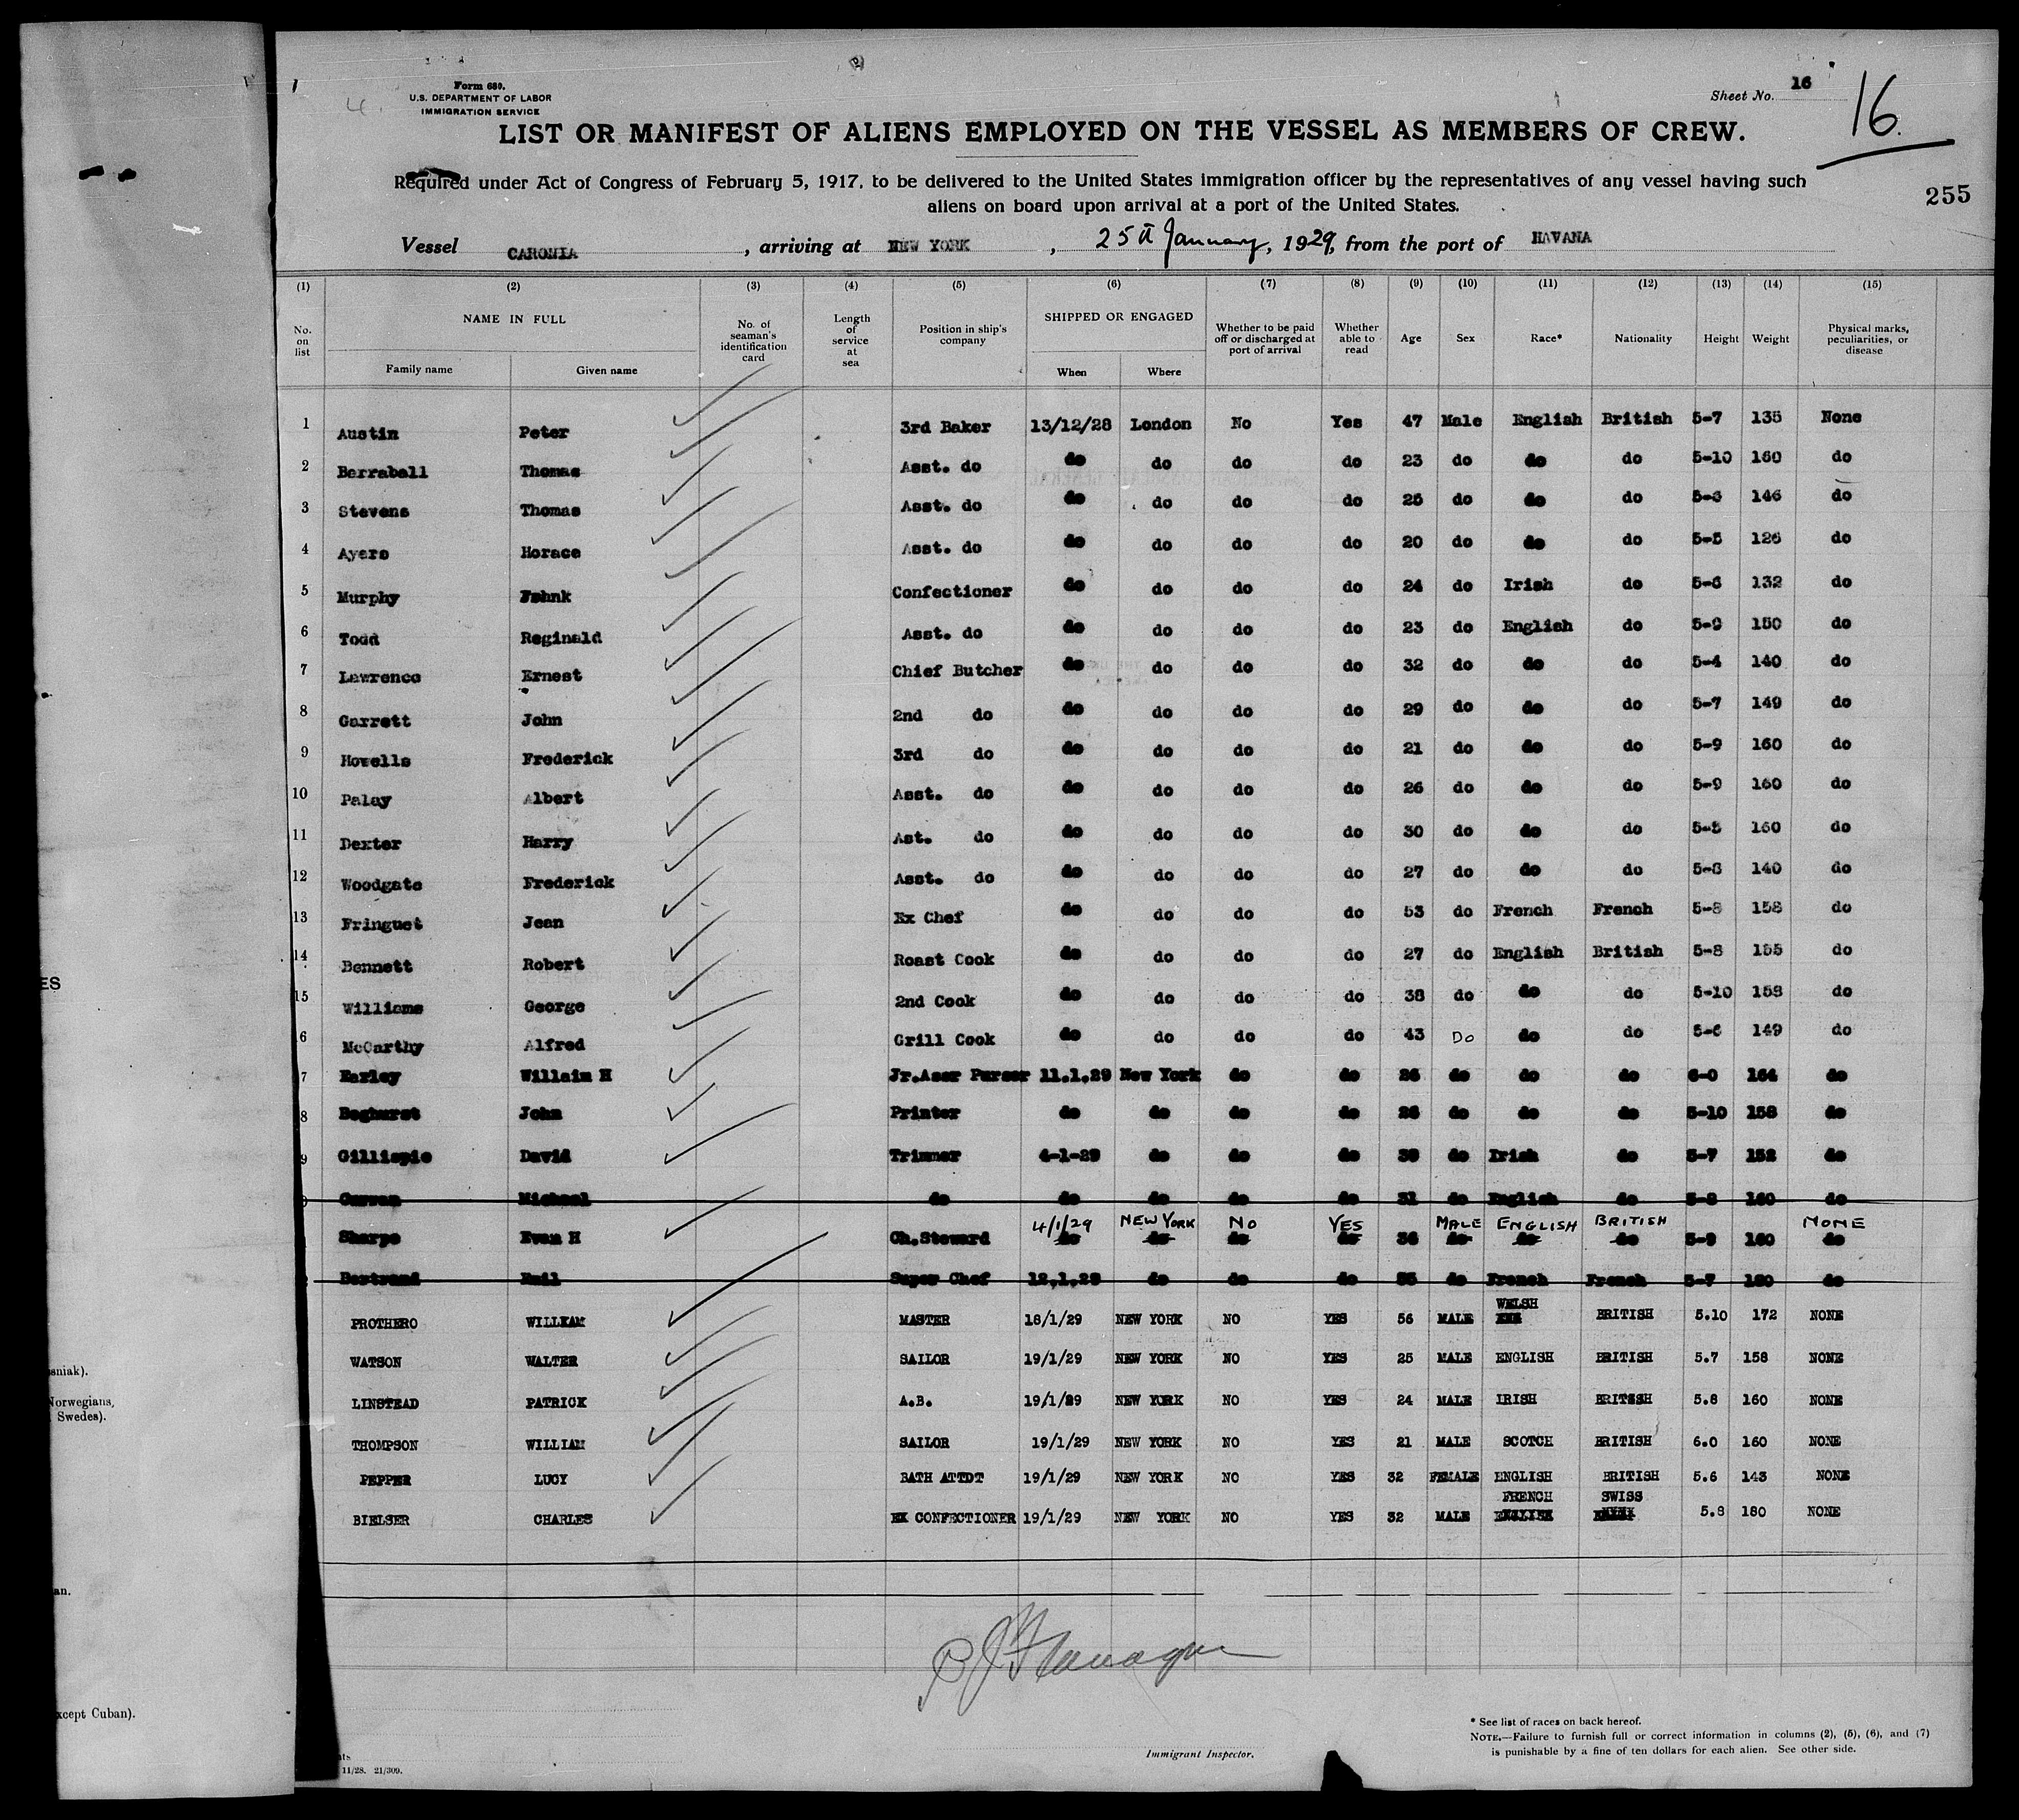 Form 680.
U.S. DEPARTMENT OF LABOR
IMMIGRATION SERVICE
Sheet No. 16
16.
LIST OR MANIFEST OF ALIENS EMPLOYED ON THE VESSEL AS MEMBERS OF CREW.
Required under Act of Congress of February 5, 1917, to be delivered to the United States immigration officer by the representatives of any vessel having such
aliens on board upon arrival at a port of the United States.
255
Vessel CARONIA, arriving at NEW YORK, 25th January, 1929, from the port of HAVANA
(1) (2) (3) (4) (5) (6) (7) (8) (9) (10) (11) (12) (13) (14) (15)
No. on list NAME IN FULL Family name Given name No. of seaman's identification card Length of service at sea Position in ship's company SHIPPED OR ENGAGED When Where Whether to be paid off or discharged at port of arrival Whether able to read Age Sex Race* Nationality Height Weight Physical marks, peculiarities, or disease
1 Austin Peter 3rd Baker 13/12/28 London No Yes 47 Male English British 5-7 135 None
2 Berraball Thomas Asst. do do do do do 23 do do do 5-10 160 do
3 Stevens Thomas Asst. do do do do do 25 do do do 146 do
4 Ayers Horace Asst. do do do do do 20 do do do 5-5 126 do
5 Murphy Confectioner do do do do 24 do Irish do 5-6 132 do
6 Todd Reginald Asst. do do do do do 23 do English do 5-9 150 do
7 Lawrence Ernest Chief Butcher do do do do 32 do do do 5-4 140 do
8 Garrett John 2nd do do do do do 29 do do do 5-7 149 do
9 Howells Frederick 3rd do do do do do 21 do do do 5-9 160 do
10 Palay Albert Asst. do do do do do 26 do do do 5-9 160 do
11 Dexter Harry Ast. do do do do do 30 do do do 160 do
12 Woodgate Frederick Asst. do do do do do 27 do do do 140 do
13 Fringuet Jean Ex Chef do do do do 53 do French French 5-8 158 do
14 Bennett Robert Roast Cook do do do do 27 do English British 5-8 155 do
15 Williams George 2nd Cook do do do do 38 do do do 5-10 158 do
6 McCarthy Alfred Grill Cook do do do do 43 Do do do 5-6 149 do
7 Earley Willaim H Jr.Aser Purser 11.1.29 New York do do 26 do do do 6-0 164 do
8 Boghurst John Printer do do do do 26 do do do 5-10 158 do
9 Gillispie David Trimmer 4-1-29 do do do do Irish do 5-7 152 do
Michael do do do do do 31 do English do 5-8 160 do
4/1/29 NEW YORK NO YES MALE ENGLISH BRITISH NONE
Sharpe Evan H Ch.Steward do do do do 36 do do do 5-9 160 do
Bertrand Emil Super Chef 12.1.29 do do do 55 do French French 5-7 180 do
WELSH
PROTHERO WILLIAM MASTER 18/1/29 NEW YORK NO YES 56 MALE BRITISH 5.10 172 NONE
WATSON WALTER SAILOR 19/1/29 NEW YORK NO YES 25 MALE ENGLISH BRITISH 5.7 158 NONE
LINSTEAD PATRICK A.B. 19/1/29 NEW YORK NO YES 24 MALE IRISH BRITISH 5.8 160 NONE
THOMPSON WILLIAM SAILOR 19/1/29 NEW YORK NO YES 21 MALE SCOTCH BRITISH 6.0 160 NONE
PEPPER LUCY BATH ATTDT 19/1/29 NEW YORK NO YES 32 FEMALE ENGLISH BRITISH 5.6 143 NONE
FRENCH SWISS
BIELSER CHARLES EX CONFECTIONER 19/1/29 NEW YORK NO YES 32 MALE 5.8 180 NONE
P J Flanagan
Immigrant Inspector.
* See list of races on back hereof.
NOTE.—Failure to furnish full or correct information in columns (2), (5), (6), and (7)
is punishable by a fine of ten dollars for each alien. See other side.
11/28. 21/309.
ES
sniak).
Norwegians,
Swedes).
an.
xcept Cuban).